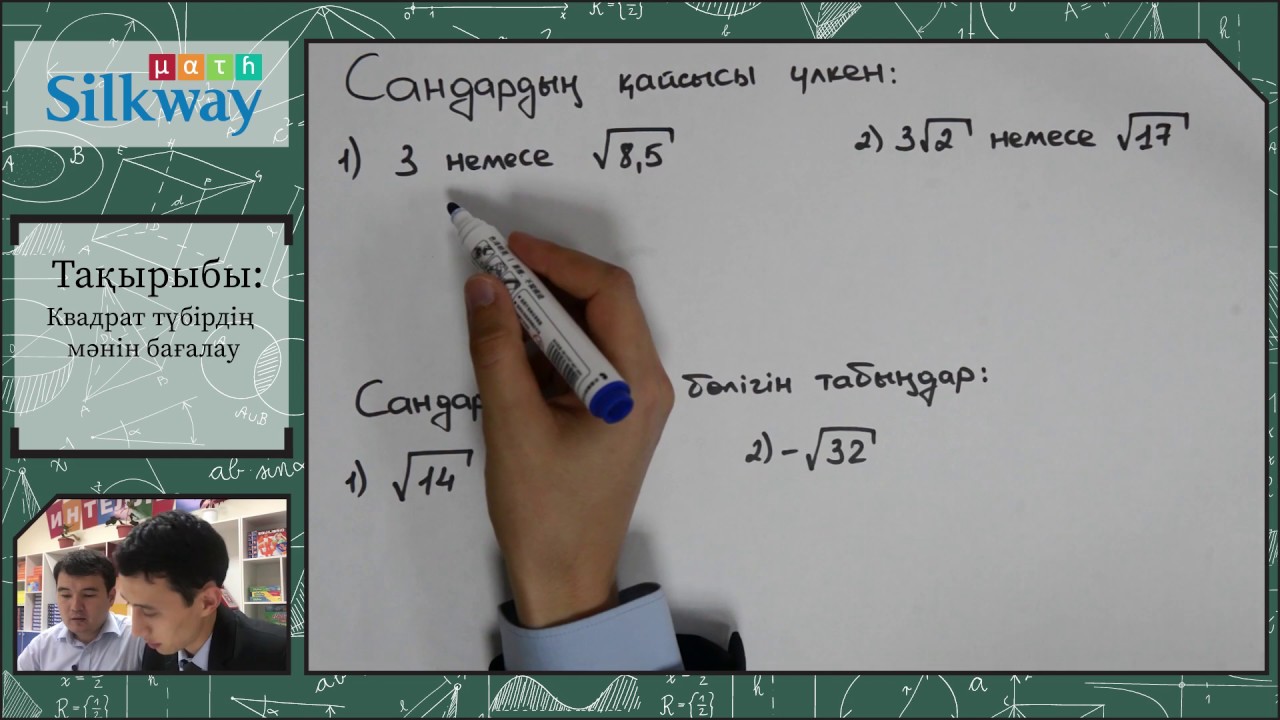 ματћ
Silkway
Тақырыбы:
Квадрат түбірдің
мәнін бағалау
Сандардың қайсысы үлкен:
1) 3 немесе √8,5
2) 3√2 немесе √17
Сандар бөлігін табыңдар:
1) √14
2) -√32
ИНТЕЛЛ